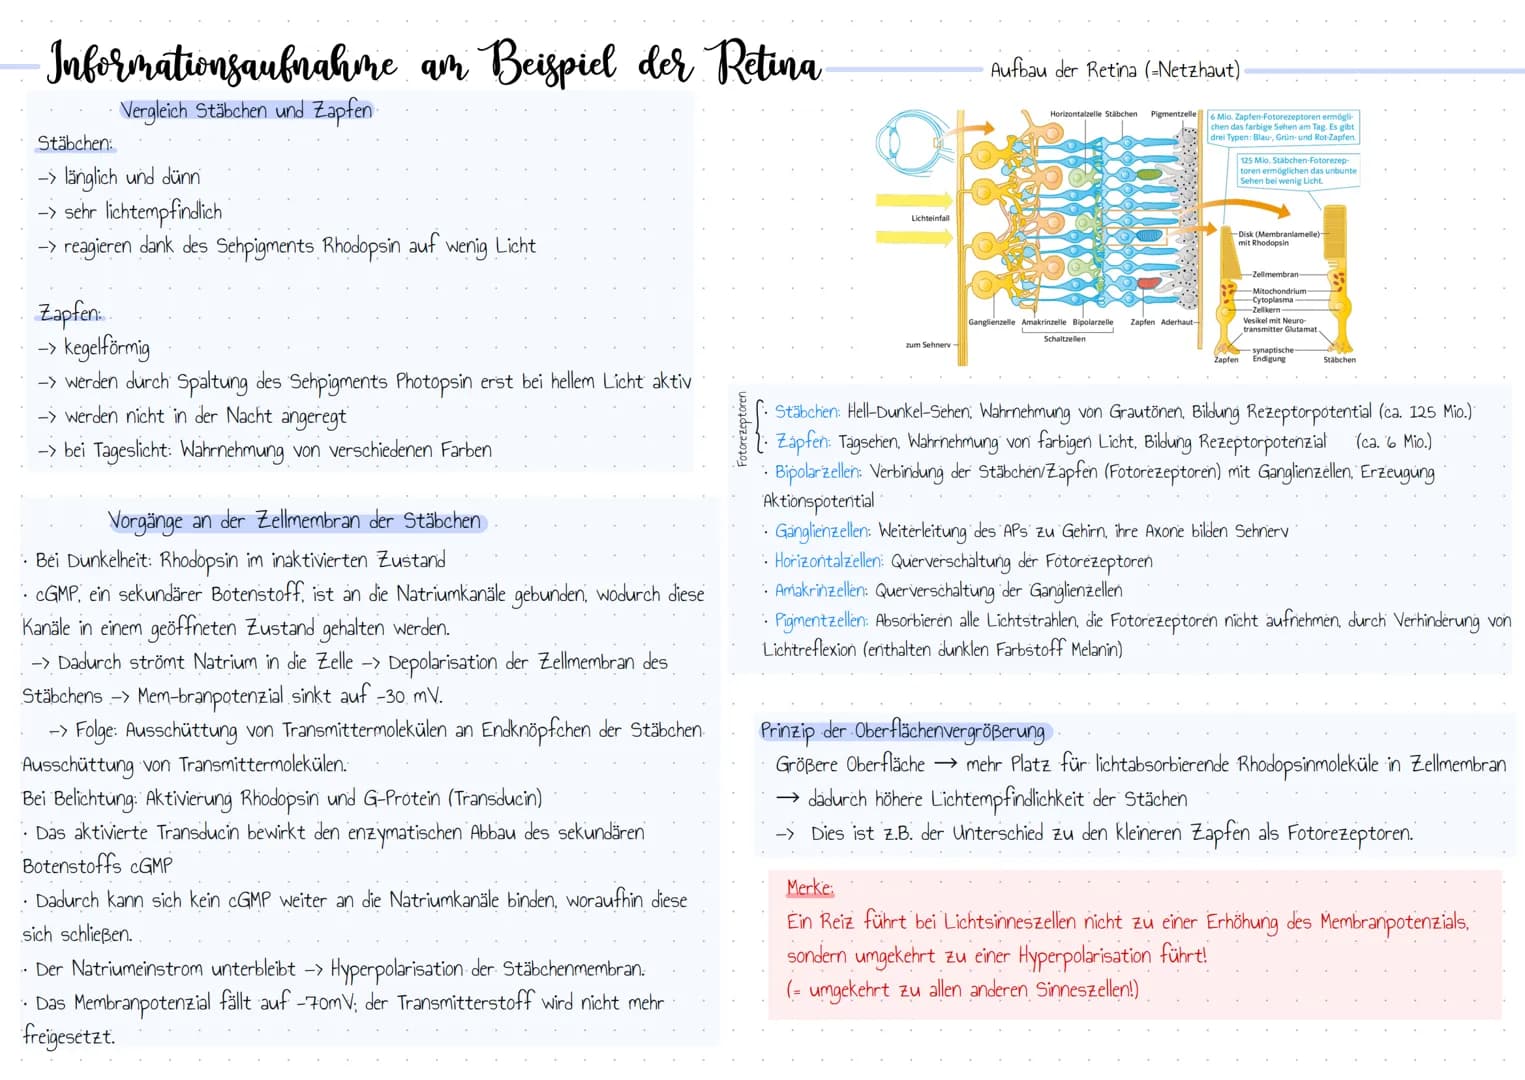 Informationsaufnahme am Beispiel der Retina
Vergleich Stäbchen und Zapfen
Stäbchen:
-> länglich und dünn
-> sehr lichtempfindlich
-> reagieren dank des Sehpigments Rhodopsin auf wenig Licht
Zapfen:
-> kegelförmig
-> werden durch Spaltung des Sehpigments Photopsin erst bei hellem Licht aktiv
-> werden nicht in der Nacht angeregt
-> bei Tageslicht: Wahrnehmung von verschiedenen Farben
Vorgänge an der Zellmembran der Stäbchen
· Bei Dunkelheit: Rhodopsin im inaktivierten Zustand
· cGMP, ein sekundärer Botenstoff, ist an die Natriumkanäle gebunden, wodurch diese
Kanäle in einem geöffneten Zustand gehalten werden.
-> Dadurch strömt Natrium in die Zelle -> Depolarisation der Zellmembran des
Stäbchens -> Mem-branpotenzial sinkt auf -30 mV.
-> Folge: Ausschüttung von Transmittermolekülen an Endknöpfchen der Stäbchen
Ausschüttung von Transmittermolekülen.
Bei Belichtung: Aktivierung Rhodopsin und G-Protein (Transducin)
· Das aktivierte Transducin bewirkt den enzymatischen Abbau des sekundären
Botenstoffs cGMP
· Dadurch kann sich kein cGMP weiter an die Natriumkanäle binden, woraufhin diese
sich schließen.
· Der Natriumeinstrom unterbleibt -> Hyperpolarisation der Stäbchenmembran.
· Das Membranpotenzial fällt auf -70mV; der Transmitterstoff wird nicht mehr
freigesetzt.
Aufbau der Retina (=Netzhaut)
Horizontalzelle Stäbchen Pigmentzelle
6 Mio. Zapfen-Fotorezeptoren ermögli-
chen das farbige Sehen am Tag. Es gibt
drei Typen: Blau-, Grün- und Rot-Zapfen.
125 Mio. Stäbchen-Fotorezep-
toren ermöglichen das unbunte
Sehen bei wenig Licht.
Lichteinfall
Disk (Membranlamelle)
mit Rhodopsin
Zellmembran
Mitochondrium
Cytoplasma
Zellkern
Vesikel mit Neuro-
transmitter Glutamat
synaptische
Endigung
Zapfen
Stäbchen
Ganglienzelle Amakrinzelle Bipolarzelle Zapfen Aderhaut
Schaltzellen
zum Sehnerv
Fotorezeptoren
· Stäbchen: Hell-Dunkel-Sehen, Wahrnehmung von Grautönen, Bildung Rezeptorpotential (ca. 125 Mio.)
· Zapfen: Tagsehen, Wahrnehmung von farbigen Licht, Bildung Rezeptorpotenzial (ca. 6 Mio.)
· Bipolarzellen: Verbindung der Stäbchen/Zapfen (Fotorezeptoren) mit Ganglienzellen, Erzeugung
Aktionspotential
· Ganglienzellen: Weiterleitung des APs zu Gehirn, ihre Axone bilden Sehnerv
· Horizontalzellen: Querverschaltung der Fotorezeptoren
· Amakrinzellen: Querverschaltung der Ganglienzellen
· Pigmentzellen: Absorbieren alle Lichtstrahlen, die Fotorezeptoren nicht aufnehmen, durch Verhinderung von
Lichtreflexion (enthalten dunklen Farbstoff Melanin)
Prinzip der Oberflächenvergrößerung
Größere Oberfläche → mehr Platz für lichtabsorbierende Rhodopsinmoleküle in Zellmembran
→ dadurch höhere Lichtempfindlichkeit der Stächen
-> Dies ist z.B. der Unterschied zu den kleineren Zapfen als Fotorezeptoren.
Merke:
Ein Reiz führt bei Lichtsinneszellen nicht zu einer Erhöhung des Membranpotenzials,
sondern umgekehrt zu einer Hyperpolarisation führt!
(= umgekehrt zu allen anderen Sinneszellen!)